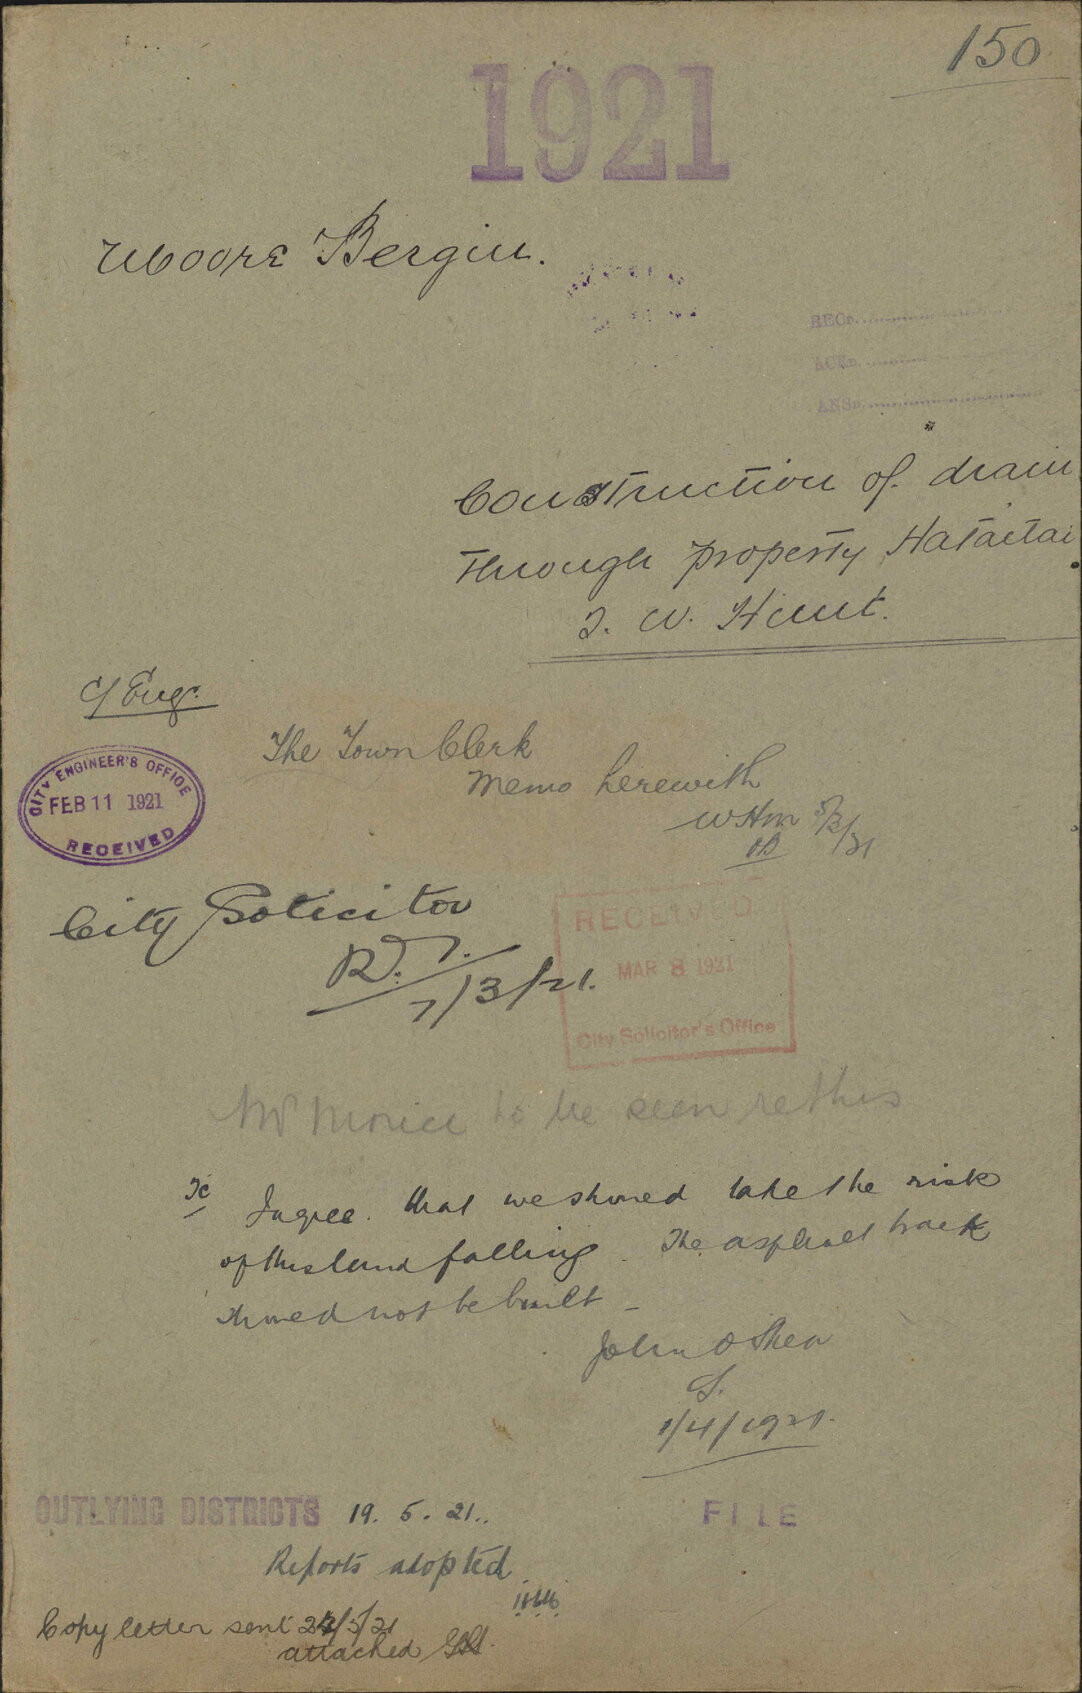 150
1921
Moore Bergin.
RECD.
ACKD.
ANSD.
Construction of drain
through property Hataitai
T. W. Hunt.
C/Engr.
The Town Clerk
Memo herewith
CITY ENGINEER'S OFFICE
FEB 11 1921
RECEIVED
City Solicitor
7/3/21.
RECEIVED
MAR 8 1921
City Solicitor's Office
Mr Morice to be seen re this
TC
I agree. that we should take the risk
of this land falling. The asphalt track
should not be built
John O'Shea
S.
1/4/1921.
OUTLYING DISTRICTS 19. 5. 21..
FILE
Reports adopted
Copy letter sent /5/21
attached